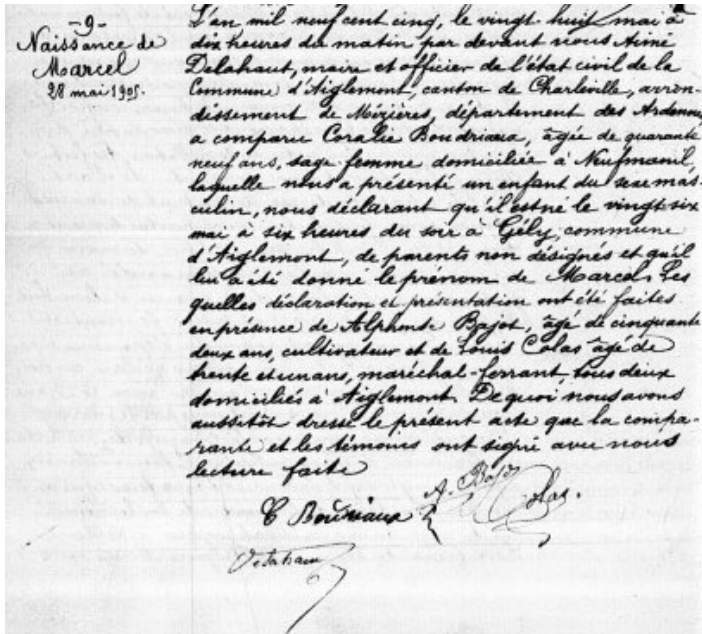 -9-
Naissance de
Marcel
28 mai 1905.
L'an mil neuf cent cinq, le vingt huit mai à
dix heures du matin par devant nous Aimé
Delahaut, maire et officier de l'état civil de la
Commune d'Aiglemont, canton de Charleville, arron-
dissement de Mézières, département des Ardennes
a comparu Coralie Boudriaux, âgée de quarante
neuf ans, sage femme, domiciliée à Neufmanil,
laquelle nous a présenté un enfant du sexe mas-
culin, nous déclarant qu'il est né le vingt six
mai à six heures du soir à Gély, commune
d'Aiglemont, de parents non désignés et qu'il
lui a été donné le prénom de Marcel. Les
quelles déclaration et présentation ont été faites
en présence de Alphonse Bajot, âgé de cinquante
deux ans, cultivateur et de Louis Colas âgé de
trente et un ans, maréchal-ferrant, tous deux
domiciliés à Aiglemont. De quoi nous avons
aussitôt dressé le présent acte que la compa-
rante et les témoins ont signé avec nous
lecture faite
C Boudriaux A. Bajot Colas.
Delahaut